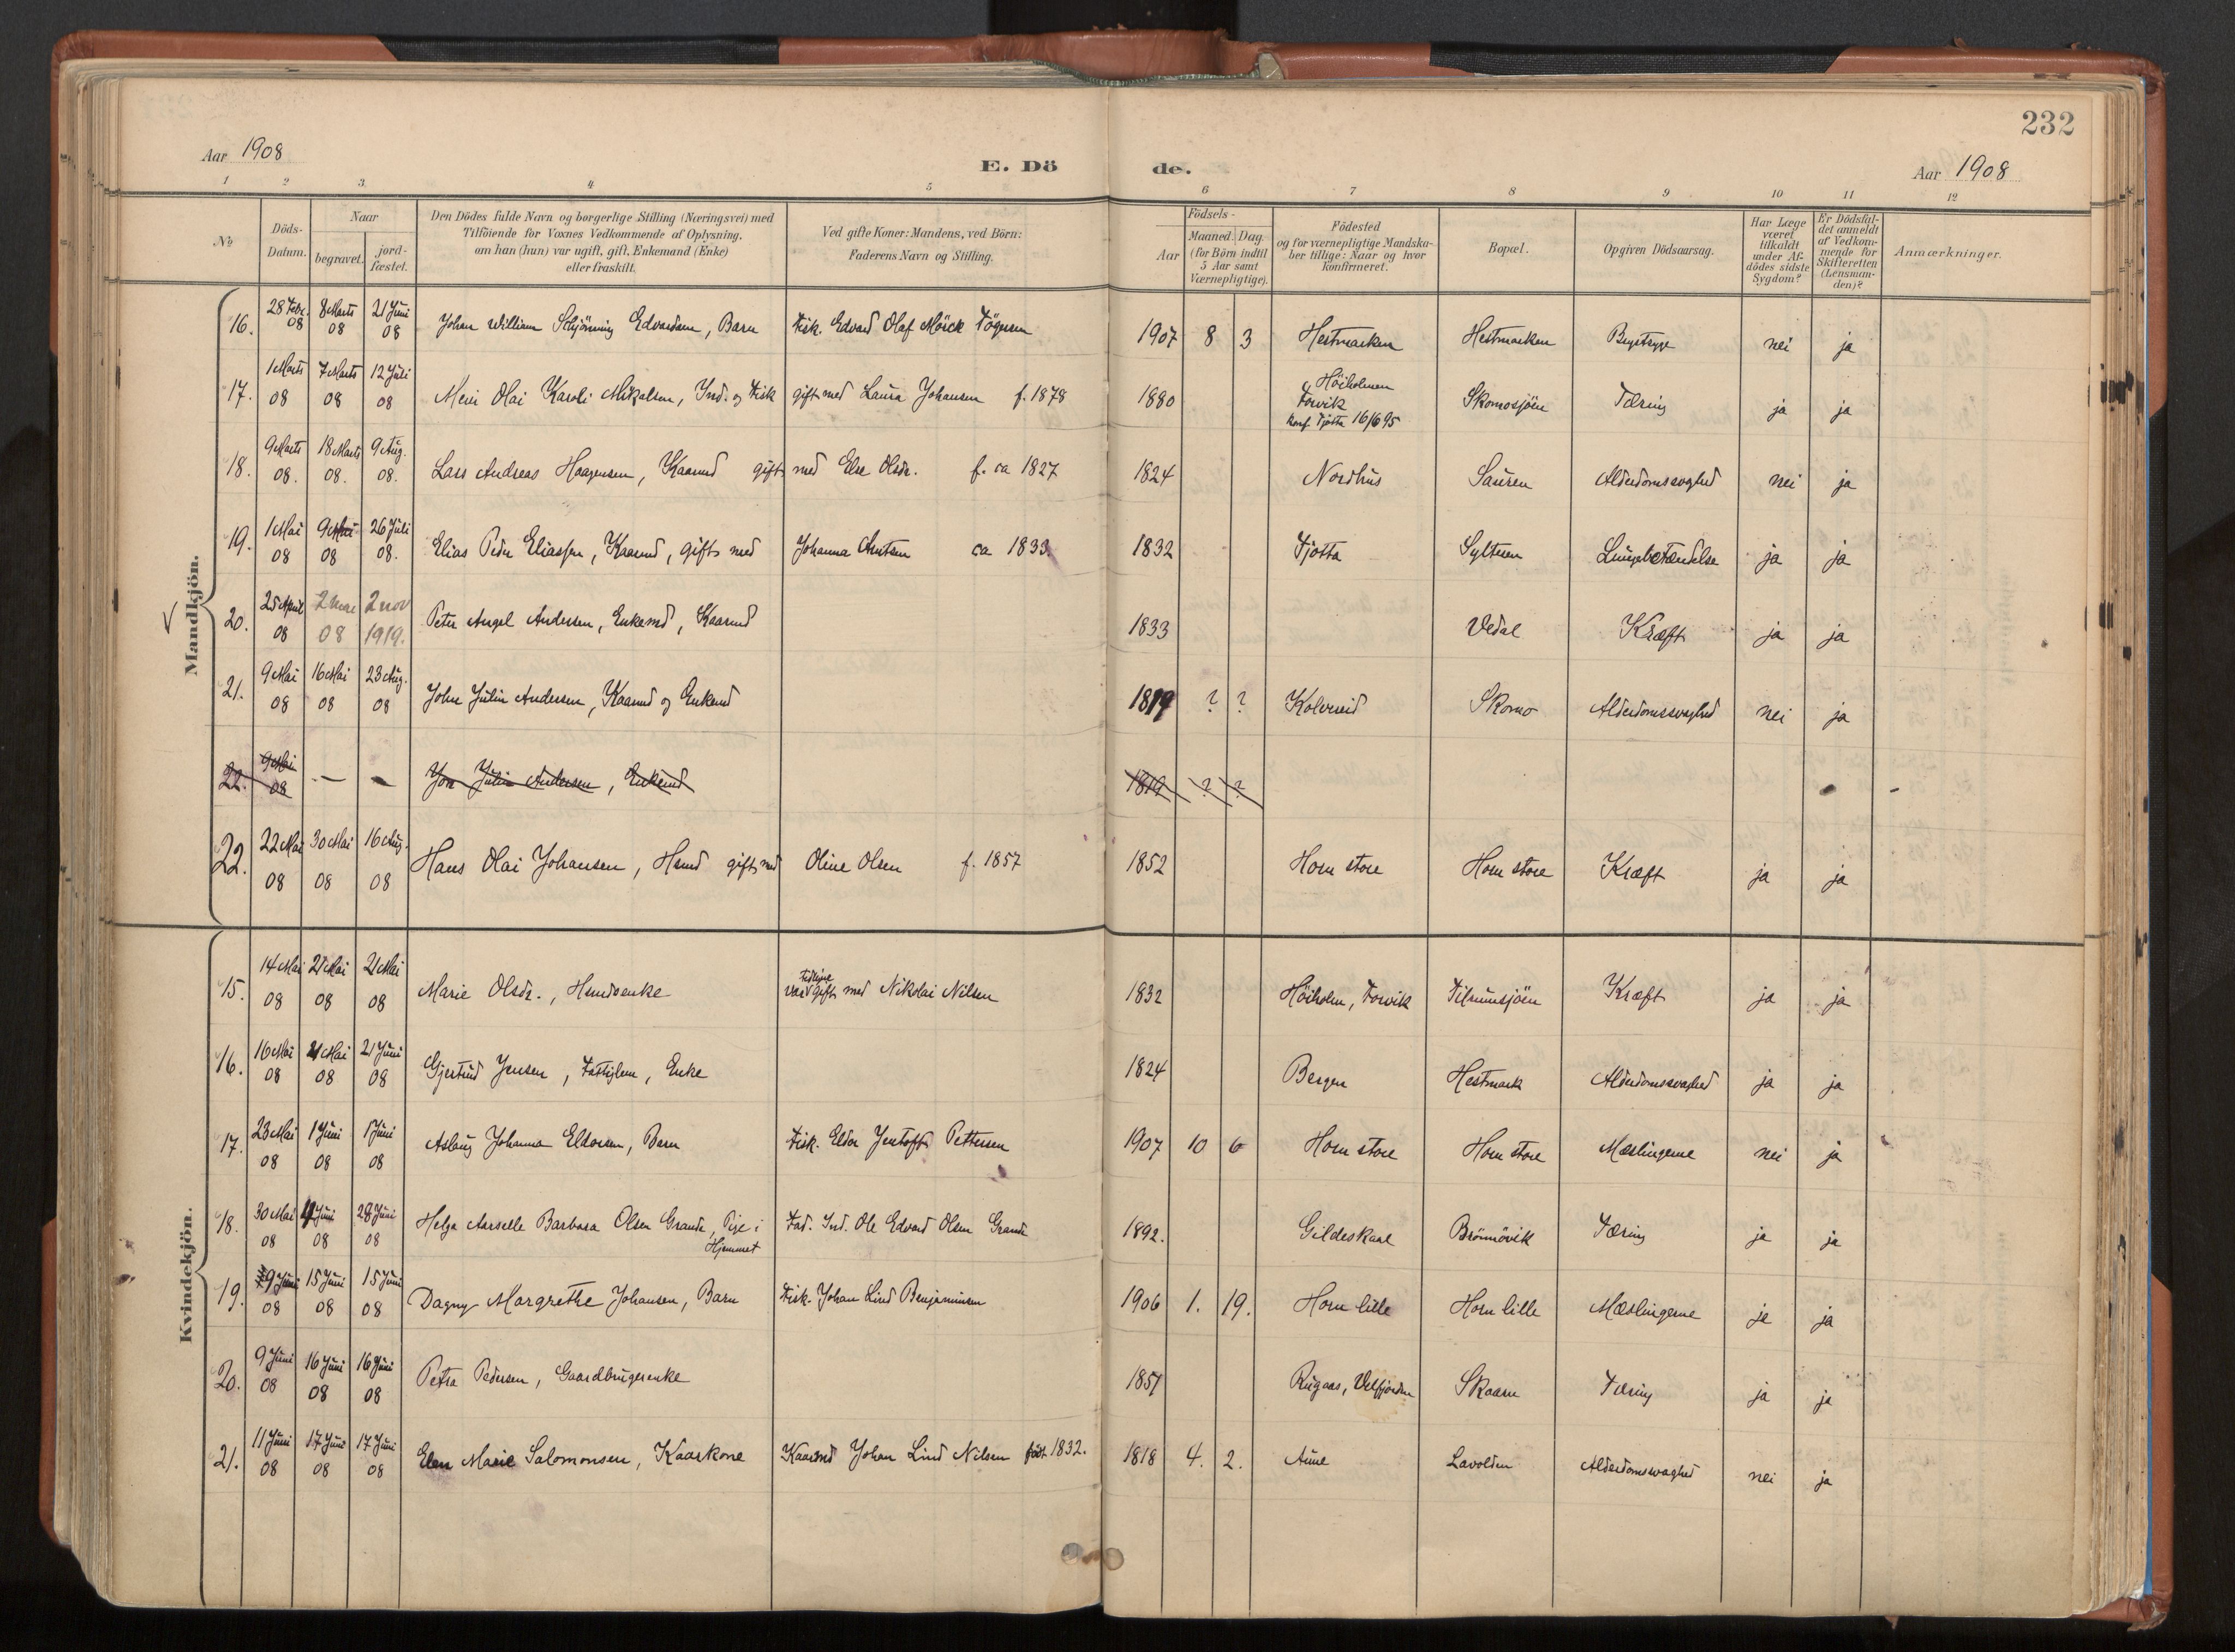 232
Aar 1908
E. Dö
de.
Aar 1908
1 2 3. 4 5 6 7 8 9 10 11 12
№ Döds-Datum. Naar begravet. jord-fæstet. Den Dödes fulde Navn og borgerlige Stilling (Næringsvei) med Tilföiende for Voxnes Vedkommende af Oplysning. om han (hun) var ugift, gift, Enkemand (Enke) eller fraskilt. Ved gifte Koner: Mandens, ved Börn: Faderens Navn og Stilling. Födsels- Aar Maaned. Dag. (for Börn indtil 5 Aar samt Værnepligtige). Födested og for værnepligtige Mandskaber tillige: Naar og hvor konfirmeret. Bopæl. Opgiven Dödsaarsag. Har Læge været tilkaldt under Afdödes sidste Sygdom? Er Dödsfaldet anmeldt af Vedkommende for Skifteretten (Lensmanden)? Anmærkninger.
Mandkjön.
16. 28 Febr. 08 8 Marts 08 21 Juni 08 Johan William Schjönning Edvardsen, Barn Fisk. Edvard Olaf Mörck 1907 8 3 Hestmarken Hestmarken Brystsyge nei ja
17. 1 Marts 08 7 Marts 08 12 Juli 08 Olai Karoli Mikalsen, Ind. og Fisk gift med Laura Johansen f. 1878 1880 Höiholmen Forvik konf. Tjötta 16/6 95 Skomosjöen Tæring ja ja
18. 9 Marts 08. 18 Marts 08. 9 Aug. 08. Lars Andreas Haagensen, Kaarmd gift med Else Olsdr. f. ca 1827 1824 Nordhus Sauren Alderdomssvaghed nei ja
19. 1 Mai 08 9 Mai 08 26 Juli 08. Elias Peder Eliassen, Kaarmd, gift med Johanna Arntsen ca 1833. 1832 Tjotta Sylteren Lungebetændelse ja ja
20. 25 April 08 2 mai 08 2 nov 1919. Peter Angel Andersen, Enkemd, Kaarmd 1833 Vedal Kræft ja ja
21. 9 Mai 08 16 Mai 08 23 Aug. 08 John Julin Andersen, Kaarmd og Enkemd 1819 ? ? Kolvereid Skomo Alderdomssvaghed nei ja
22. 9 Mai 08 — — Jon Julin Andersen, Enkemd 1819 ? ?
22. 22 Mai 08 30 Mai 08 16 Aug. 08 Hans Olai Johansen, Hsmd gift med Oline Olsen f. 1857 1852 Horn store Horn store Kræft ja ja
Kvindekjön.
15. 14 Mai 08 21 Mai 08 21 Mai 08 Marie Olsdr., Hsmdsenke var tidligere gift med Nikolai Nilsen 1832 Höiholm, Forvik Tilrumsjöen Kræft ja ja
16. 16 Mai 08 21 Mai 08 21 Juni 08 Gjertrud Jensen, Fattiglem, Enke 1824 Bergen Hestmark Alderdomssvaghed ja ja
17. 23 Mai 08 1 Juni 08 1 Juni 08 Aslaug Johanna Eldorsen, Barn Fisk. Eldor Jentoft Pettersen 1907 10 6 Horn store Horn store Mæslingerne nei ja
18. 30 Mai 08 4 Juni 08 28 Juni 08 Helga Barbara Olsen Grande, Pige i Hjemmet Fad. Ind. Ole Edvard Olsen Grande 1892. Gildeskaal Brönnövik Tæring ja ja
19. 9 Juni 08 15 Juni 08 15 Juni 08 Dagny Margrethe Johansen, Barn Fisk. Johan Lind Benjaminsen 1906 1. 19. Horn lille Horn lille Mæslingerne ja ja
20. 9 Juni 08 16 Juni 08 16 Juni 08 Petra Pedersen, Gaardbrugerenke 1857 Rugaas, Velfjorden Skaaren Tæring ja ja
21. 11 Juni 08 17 Juni 08 17 Juni 08 Elen Marie Salomonsen, Kaarkone Kaarmd Johan Lind Nilsen født 1832. 1818 4. 2. Aune Lavolden Alderdomssvaghed nei ja